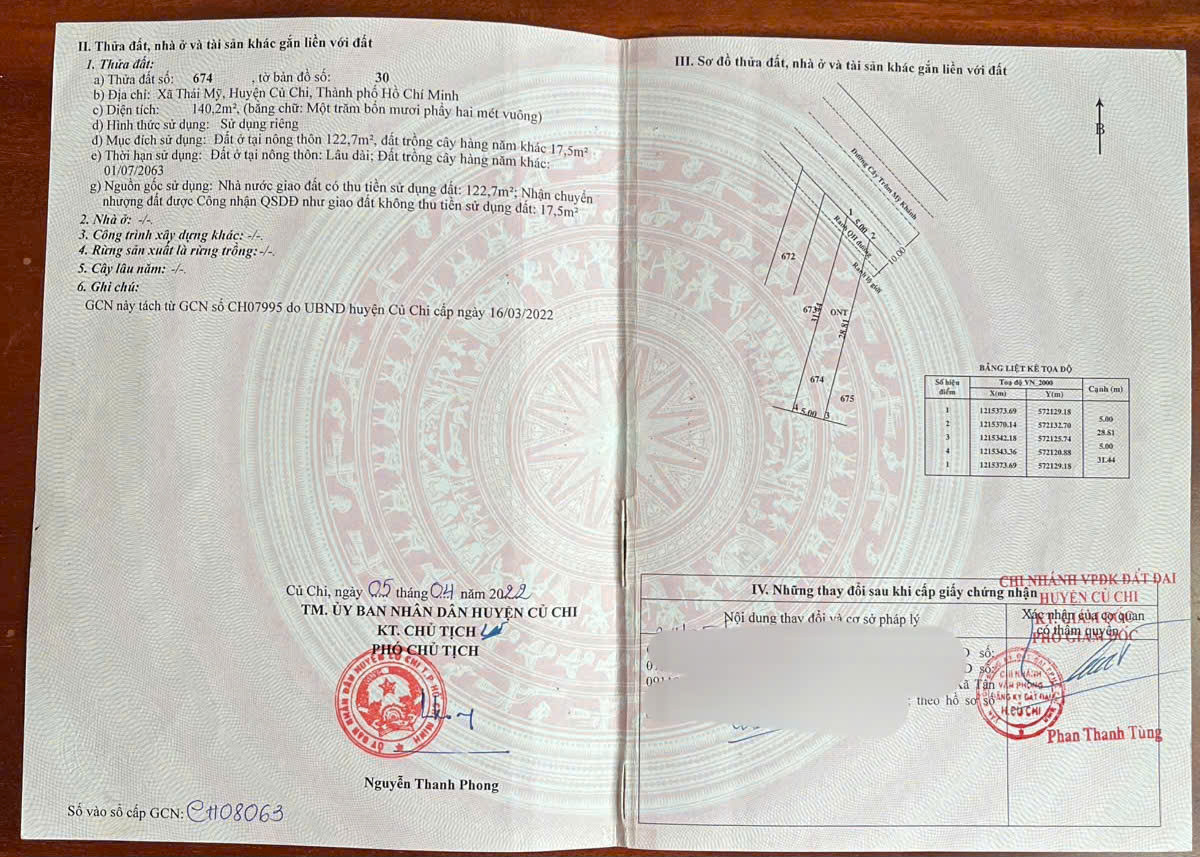 II. Thửa đất, nhà ở và tài sản khác gắn liền với đất
1. Thửa đất:
a) Thửa đất số: 674 , tờ bản đồ số: 30
b) Địa chỉ: Xã Thái Mỹ, Huyện Củ Chi, Thành phố Hồ Chí Minh
c) Diện tích: 140,2m², (bằng chữ: Một trăm bốn mươi phẩy hai mét vuông)
d) Hình thức sử dụng: Sử dụng riêng
đ) Mục đích sử dụng: Đất ở tại nông thôn 122,7m², đất trồng cây hàng năm khác 17,5m²
e) Thời hạn sử dụng: Đất ở tại nông thôn: Lâu dài; Đất trồng cây hàng năm khác:
01/07/2063
g) Nguồn gốc sử dụng: Nhà nước giao đất có thu tiền sử dụng đất: 122,7m²; Nhận chuyển
nhượng đất được Công nhận QSDĐ như giao đất không thu tiền sử dụng đất: 17,5m²
2. Nhà ở: -/-.
3. Công trình xây dựng khác: -/-.
4. Rừng sản xuất là rừng trồng: -/-.
5. Cây lâu năm: -/-.
6. Ghi chú:
GCN này tách từ GCN số CH07995 do UBND huyện Củ Chi cấp ngày 16/03/2022
Củ Chi, ngày 05 tháng 04 năm 2022
TM. ỦY BAN NHÂN DÂN HUYỆN CỦ CHI
KT. CHỦ TỊCH
PHÓ CHỦ TỊCH
ỦY BAN NHÂN DÂN HUYỆN CỦ CHI T.P HỒ CHÍ MINH
Nguyễn Thanh Phong
Số vào sổ cấp GCN: CH08063
III. Sơ đồ thửa đất, nhà ở và tài sản khác gắn liền với đất
B
Đường Cây Trôm Mỹ Khánh
1 5.00 2
Ranh QH đường
10.00
Ranh lộ giới
672
673
31.44
ONT
28.81
674
675
4 5.00 3
BẢNG LIỆT KÊ TỌA ĐỘ
Số hiệu điểm Toạ độ VN_2000 Cạnh (m)
X(m) Y(m)
1 1215373.69 572129.18
5.00
2 1215370.14 572132.70
28.81
3 1215342.18 572125.74
5.00
4 1215343.36 572120.88
31.44
1 1215373.69 572129.18
IV. Những thay đổi sau khi cấp giấy chứng nhận
Nội dung thay đổi và cơ sở pháp lý
Xác nhận của cơ quan
có thẩm quyền
CHI NHÁNH VPĐK ĐẤT ĐAI
HUYỆN CỦ CHI
KT. GIÁM ĐỐC
PHÓ GIÁM ĐỐC
số:
số:
xã Tân
theo hồ sơ số
CHI NHÁNH
VĂN PHÒNG
ĐĂNG KÝ ĐẤT ĐAI
H.CỦ CHI
Phan Thanh Tùng